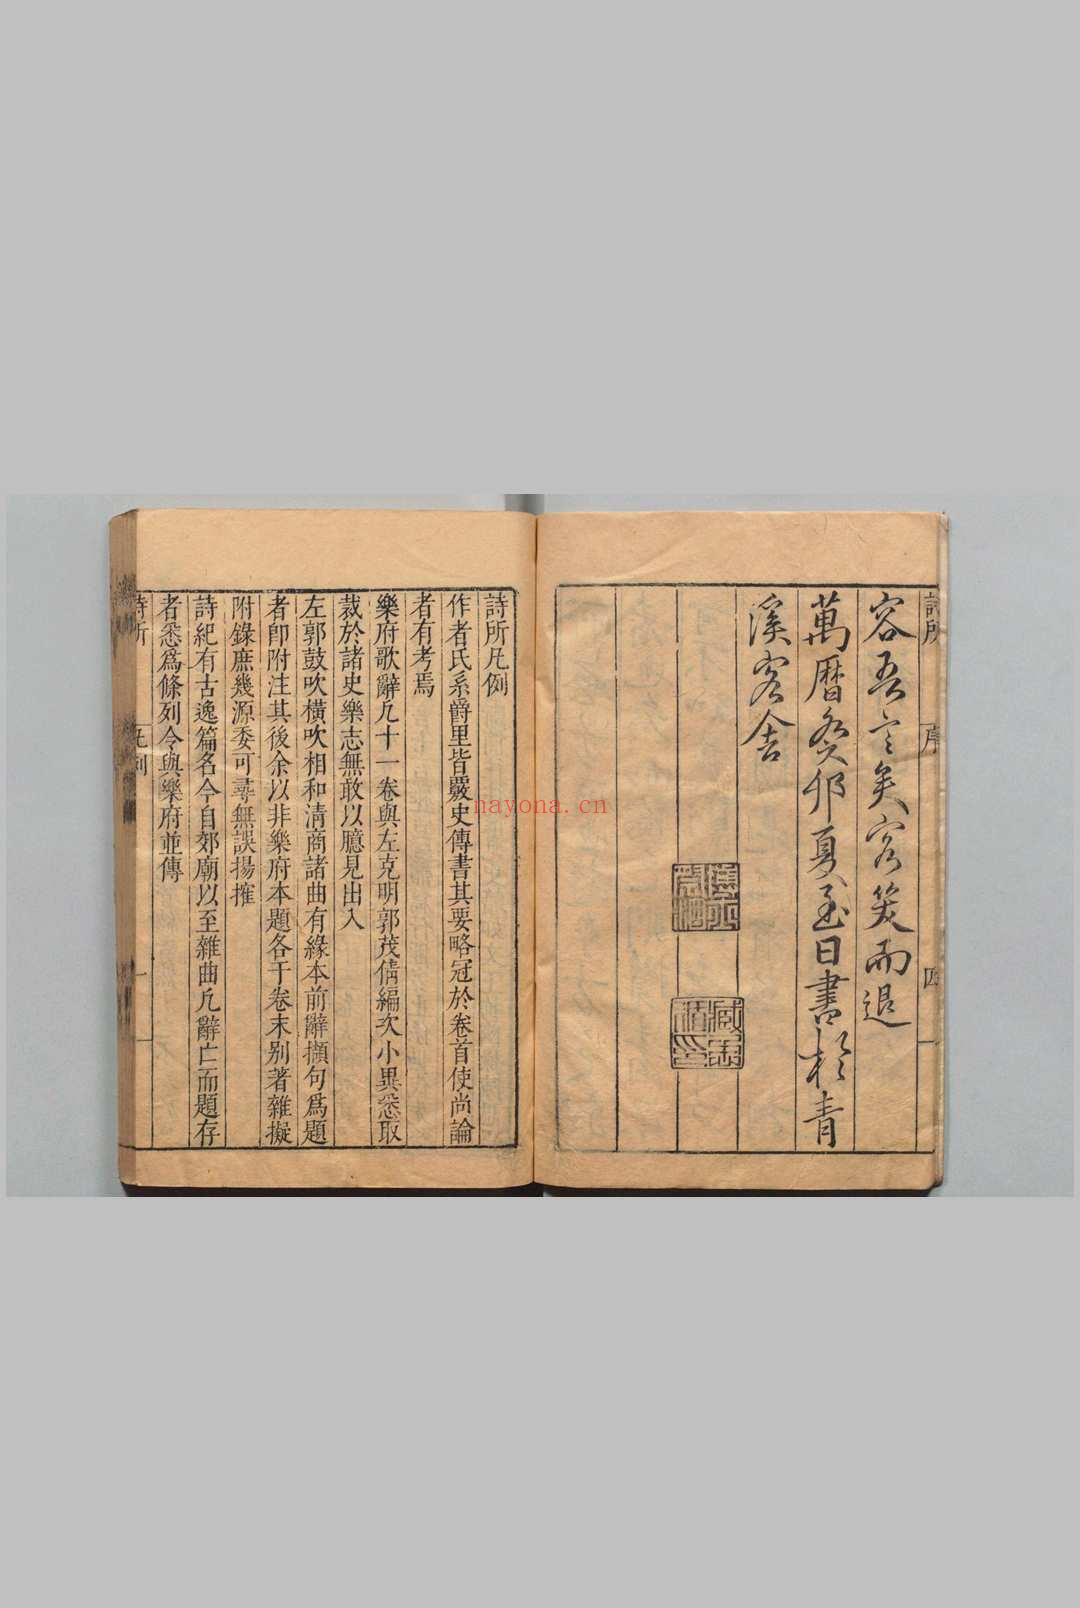 容吾言矣客笑而退
萬曆癸卯夏至日書於青
溪客舍
詩所
序
四
詩所凡例
作者氏系爵里皆覈史傳書其要略冠於卷首使尚論
者有考焉
樂府歌辭凡十一卷與左克明郭茂倩編次小異悉取
裁於諸史樂志無敢以臆見出入
左郭鼓吹橫吹相和清商諸曲有緣本前辭擷句爲題
者卽附注其後余以非樂府本題各于卷末别著雜擬
附錄庶幾源委可尋無誤揚搉
詩紀有古逸篇名今自郊廟以至雜曲凡辭亡而題存
者悉爲條列令與樂府並傳
詩所
凡例
一
nayona.cn